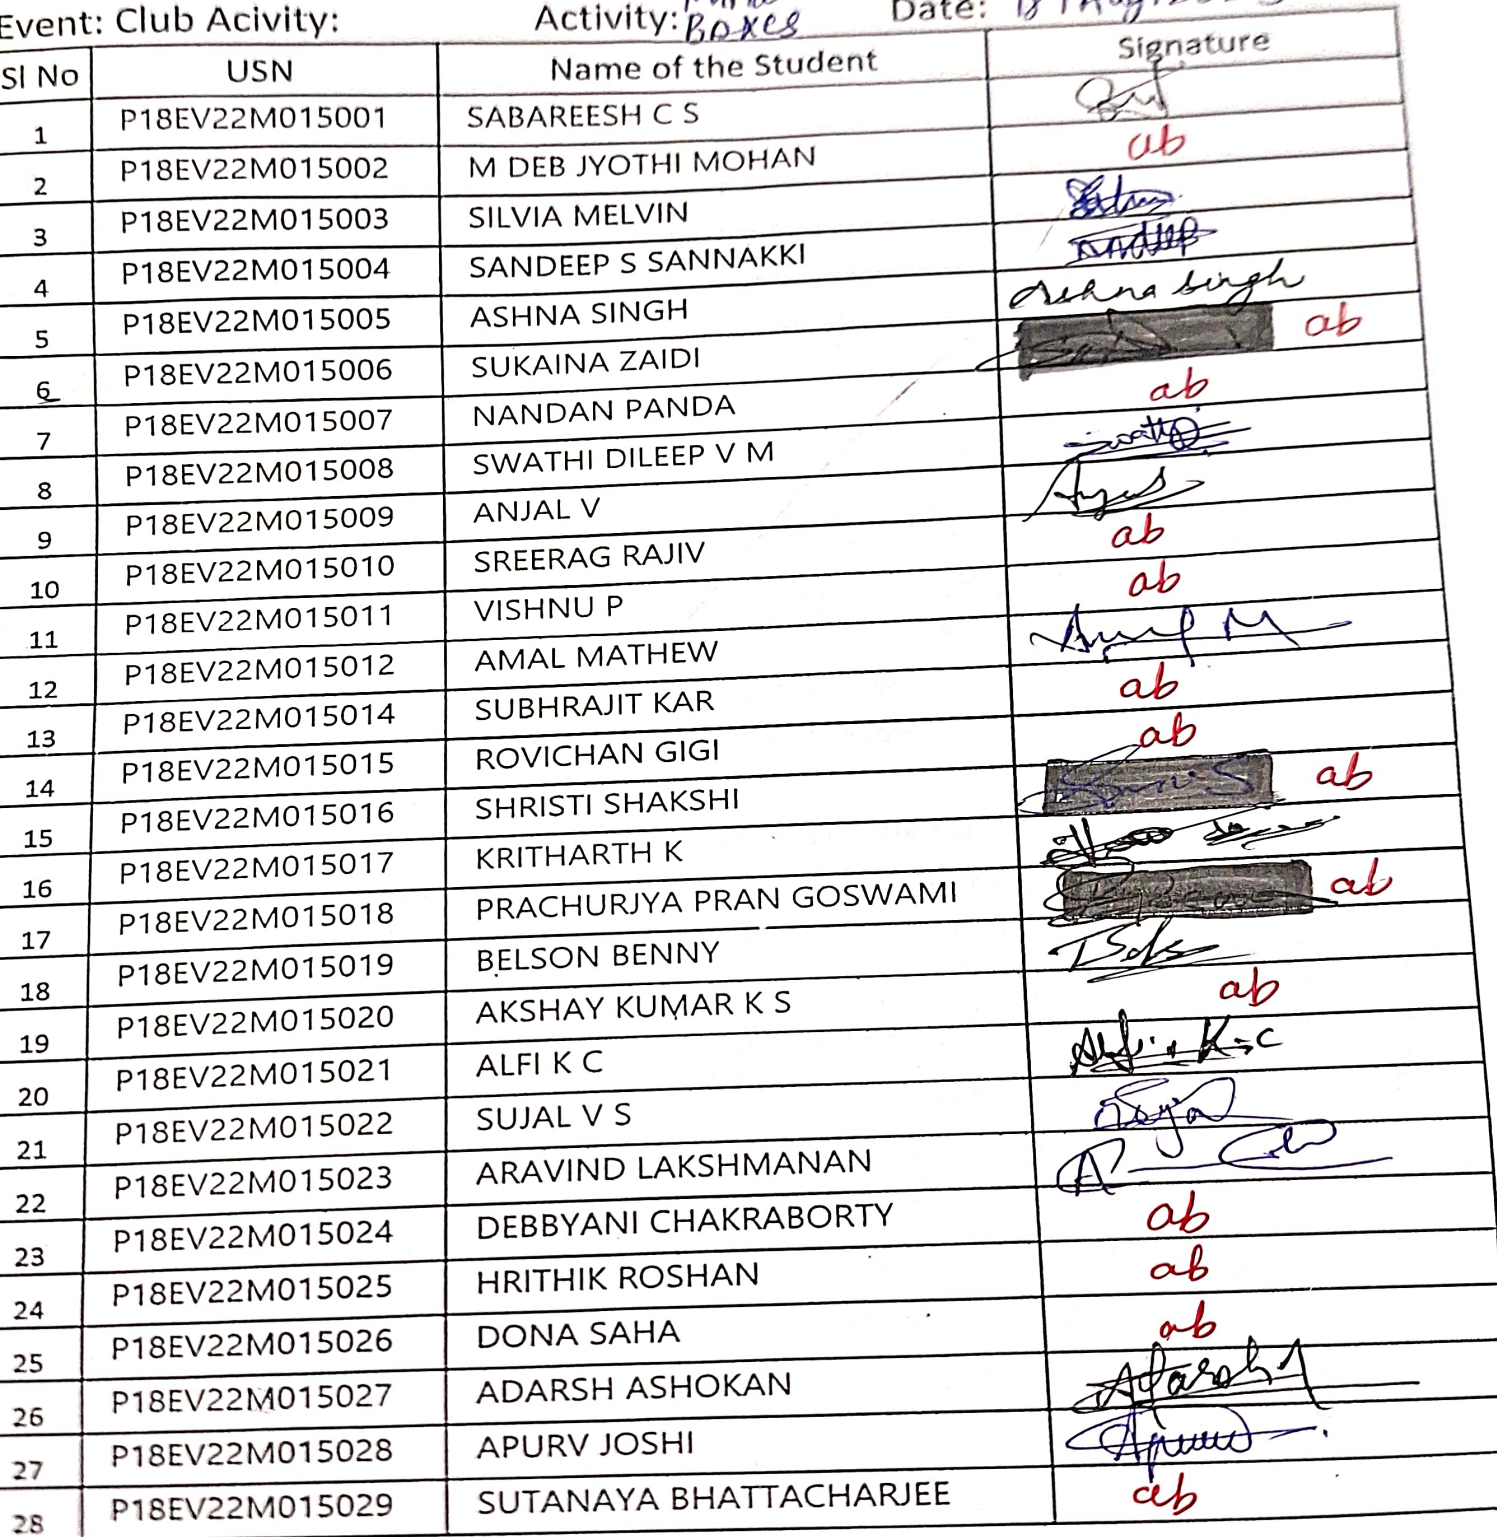 Event: Club Acivity: Activity: Boxes Date:
Sl No USN Name of the Student Signature
1 P18EV22M015001 SABAREESH C S
2 P18EV22M015002 M DEB JYOTHI MOHAN ab
3 P18EV22M015003 SILVIA MELVIN
4 P18EV22M015004 SANDEEP S SANNAKKI
5 P18EV22M015005 ASHNA SINGH Ashna Singh
6 P18EV22M015006 SUKAINA ZAIDI ab
7 P18EV22M015007 NANDAN PANDA ab
8 P18EV22M015008 SWATHI DILEEP V M Swathi
9 P18EV22M015009 ANJAL V
10 P18EV22M015010 SREERAG RAJIV ab
11 P18EV22M015011 VISHNU P ab
12 P18EV22M015012 AMAL MATHEW
13 P18EV22M015014 SUBHRAJIT KAR ab
14 P18EV22M015015 ROVICHAN GIGI ab
15 P18EV22M015016 SHRISTI SHAKSHI ab
16 P18EV22M015017 KRITHARTH K
17 P18EV22M015018 PRACHURJYA PRAN GOSWAMI ab
18 P18EV22M015019 BELSON BENNY
19 P18EV22M015020 AKSHAY KUMAR K S ab
20 P18EV22M015021 ALFI K C Alfi K C
21 P18EV22M015022 SUJAL V S
22 P18EV22M015023 ARAVIND LAKSHMANAN
23 P18EV22M015024 DEBBYANI CHAKRABORTY ab
24 P18EV22M015025 HRITHIK ROSHAN ab
25 P18EV22M015026 DONA SAHA ab
26 P18EV22M015027 ADARSH ASHOKAN Adarsh
27 P18EV22M015028 APURV JOSHI
28 P18EV22M015029 SUTANAYA BHATTACHARJEE ab